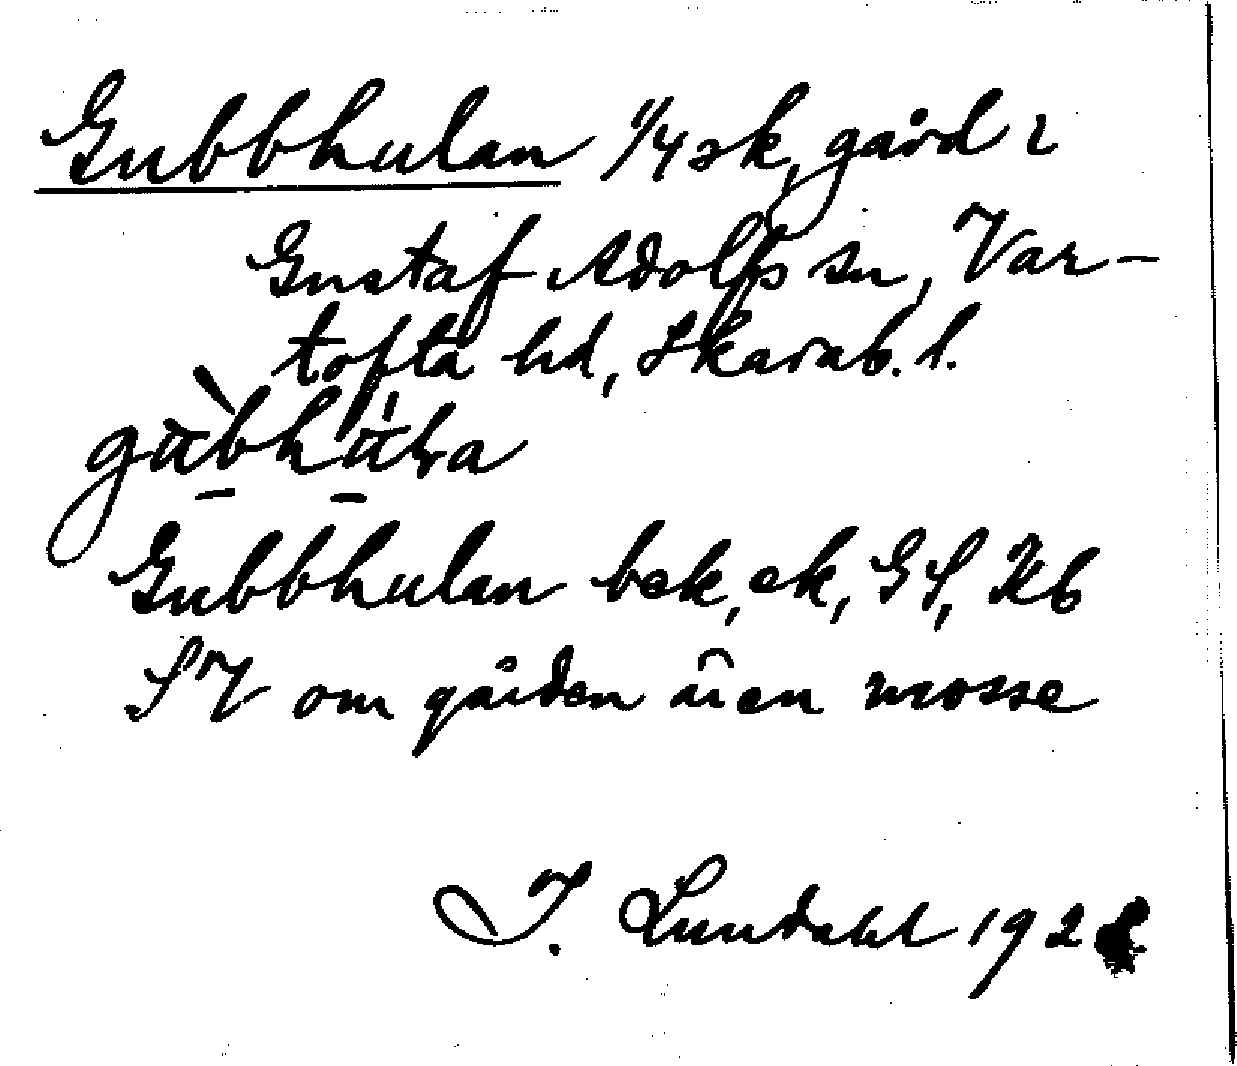 Gubbhulan 1/4 sk, gård i
Gustaf Adolfs sn, Var-
tofta hd, Skarab. l.
Gubbhulan bek, ek, GS, Kb
SV om gården är en mosse
I. Lundahl